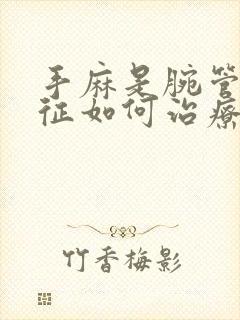 手麻是腕管
征如何治疗
竹香梅影